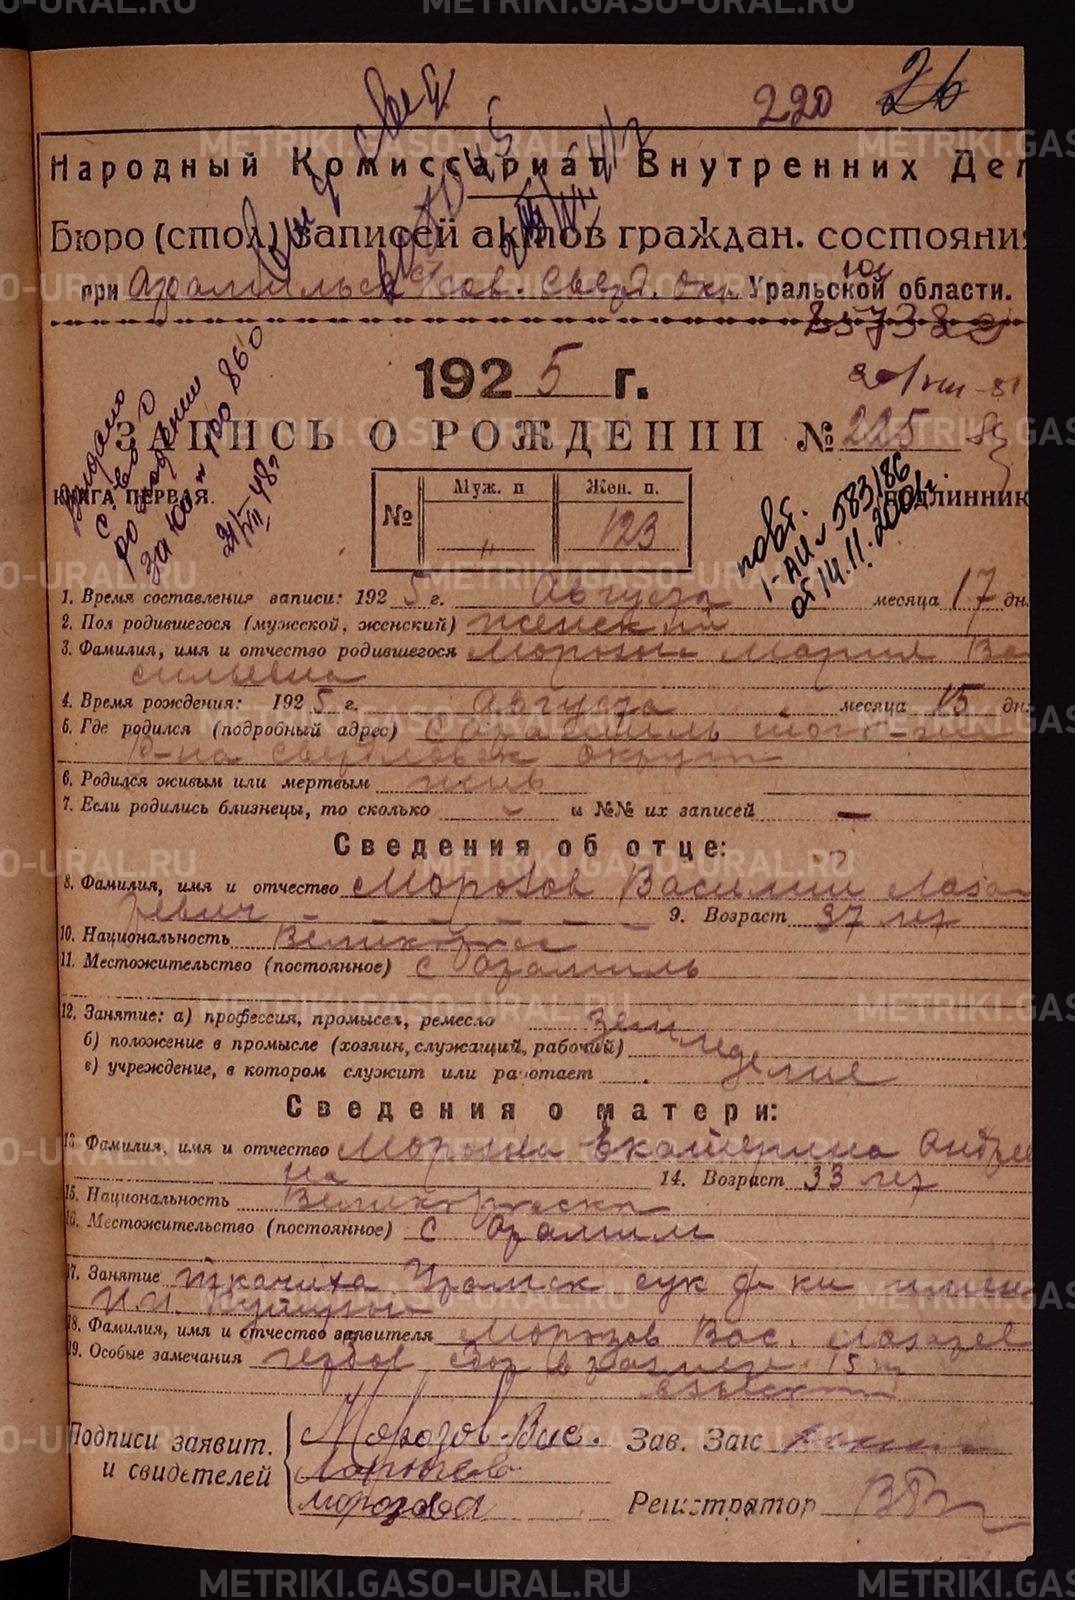 220 26
Народный Комиссариат Внутренних Дел
Бюро (стол) записей актов граждан. состояния
при Арамильск Уральской области.
1925 г.
ЗАПИСЬ О РОЖДЕНИИ № 225
Выдано
с-во о
рождении
21/VII 48г
КНИГА ПЕРВАЯ.
ПОДЛИННИК
№ Муж. п. Жен. п.
" 123
повт.
I-АИ № 583186
от 14.11.2001г.
1. Время составления записи: 1925 г. Августа месяца 17 дн.
2. Пол родившегося (мужской, женский) женский
3. Фамилия, имя и отчество родившегося Морозова Мария Ва
сильевна
4. Время рождения: 1925 г. Августа месяца 15 дня
5. Где родился (подробный адрес) С Арамиль того-же
р-на Свердловск округа
6. Родился живым или мертвым жив
7. Если родились близнецы, то сколько - и №№ их записей —
Сведения об отце:
8. Фамилия, имя и отчество Морозов Василий Лаза
ревич - - - - - - 9. Возраст 37 лет
10. Национальность Великоросс
11. Местожительство (постоянное) с Арамиль
12. Занятие: а) профессия, промысел, ремесло Зем
б) положение в промысле (хозяин, служащий, рабочий) леде
в) учреждение, в котором служит или работает лие
Сведения о матери:
13. Фамилия, имя и отчество Морозова Екатерина Андреев
на 14. Возраст 33 лет
15. Национальность Великоросска
16. Местожительство (постоянное) с Арамил
17. Занятие ткачиха Арамск сук ф-ки имени
18. Фамилия, имя и отчество заявителя Морозов Вас. Лазарев
19. Особые замечания гербов сбор в размере 15 к
взыскан
Подписи заявит.
и свидетелей
Морозов Вас.
Морозова
Зав. Загс
Регистратор
METRIKI.GASO-URAL.RU